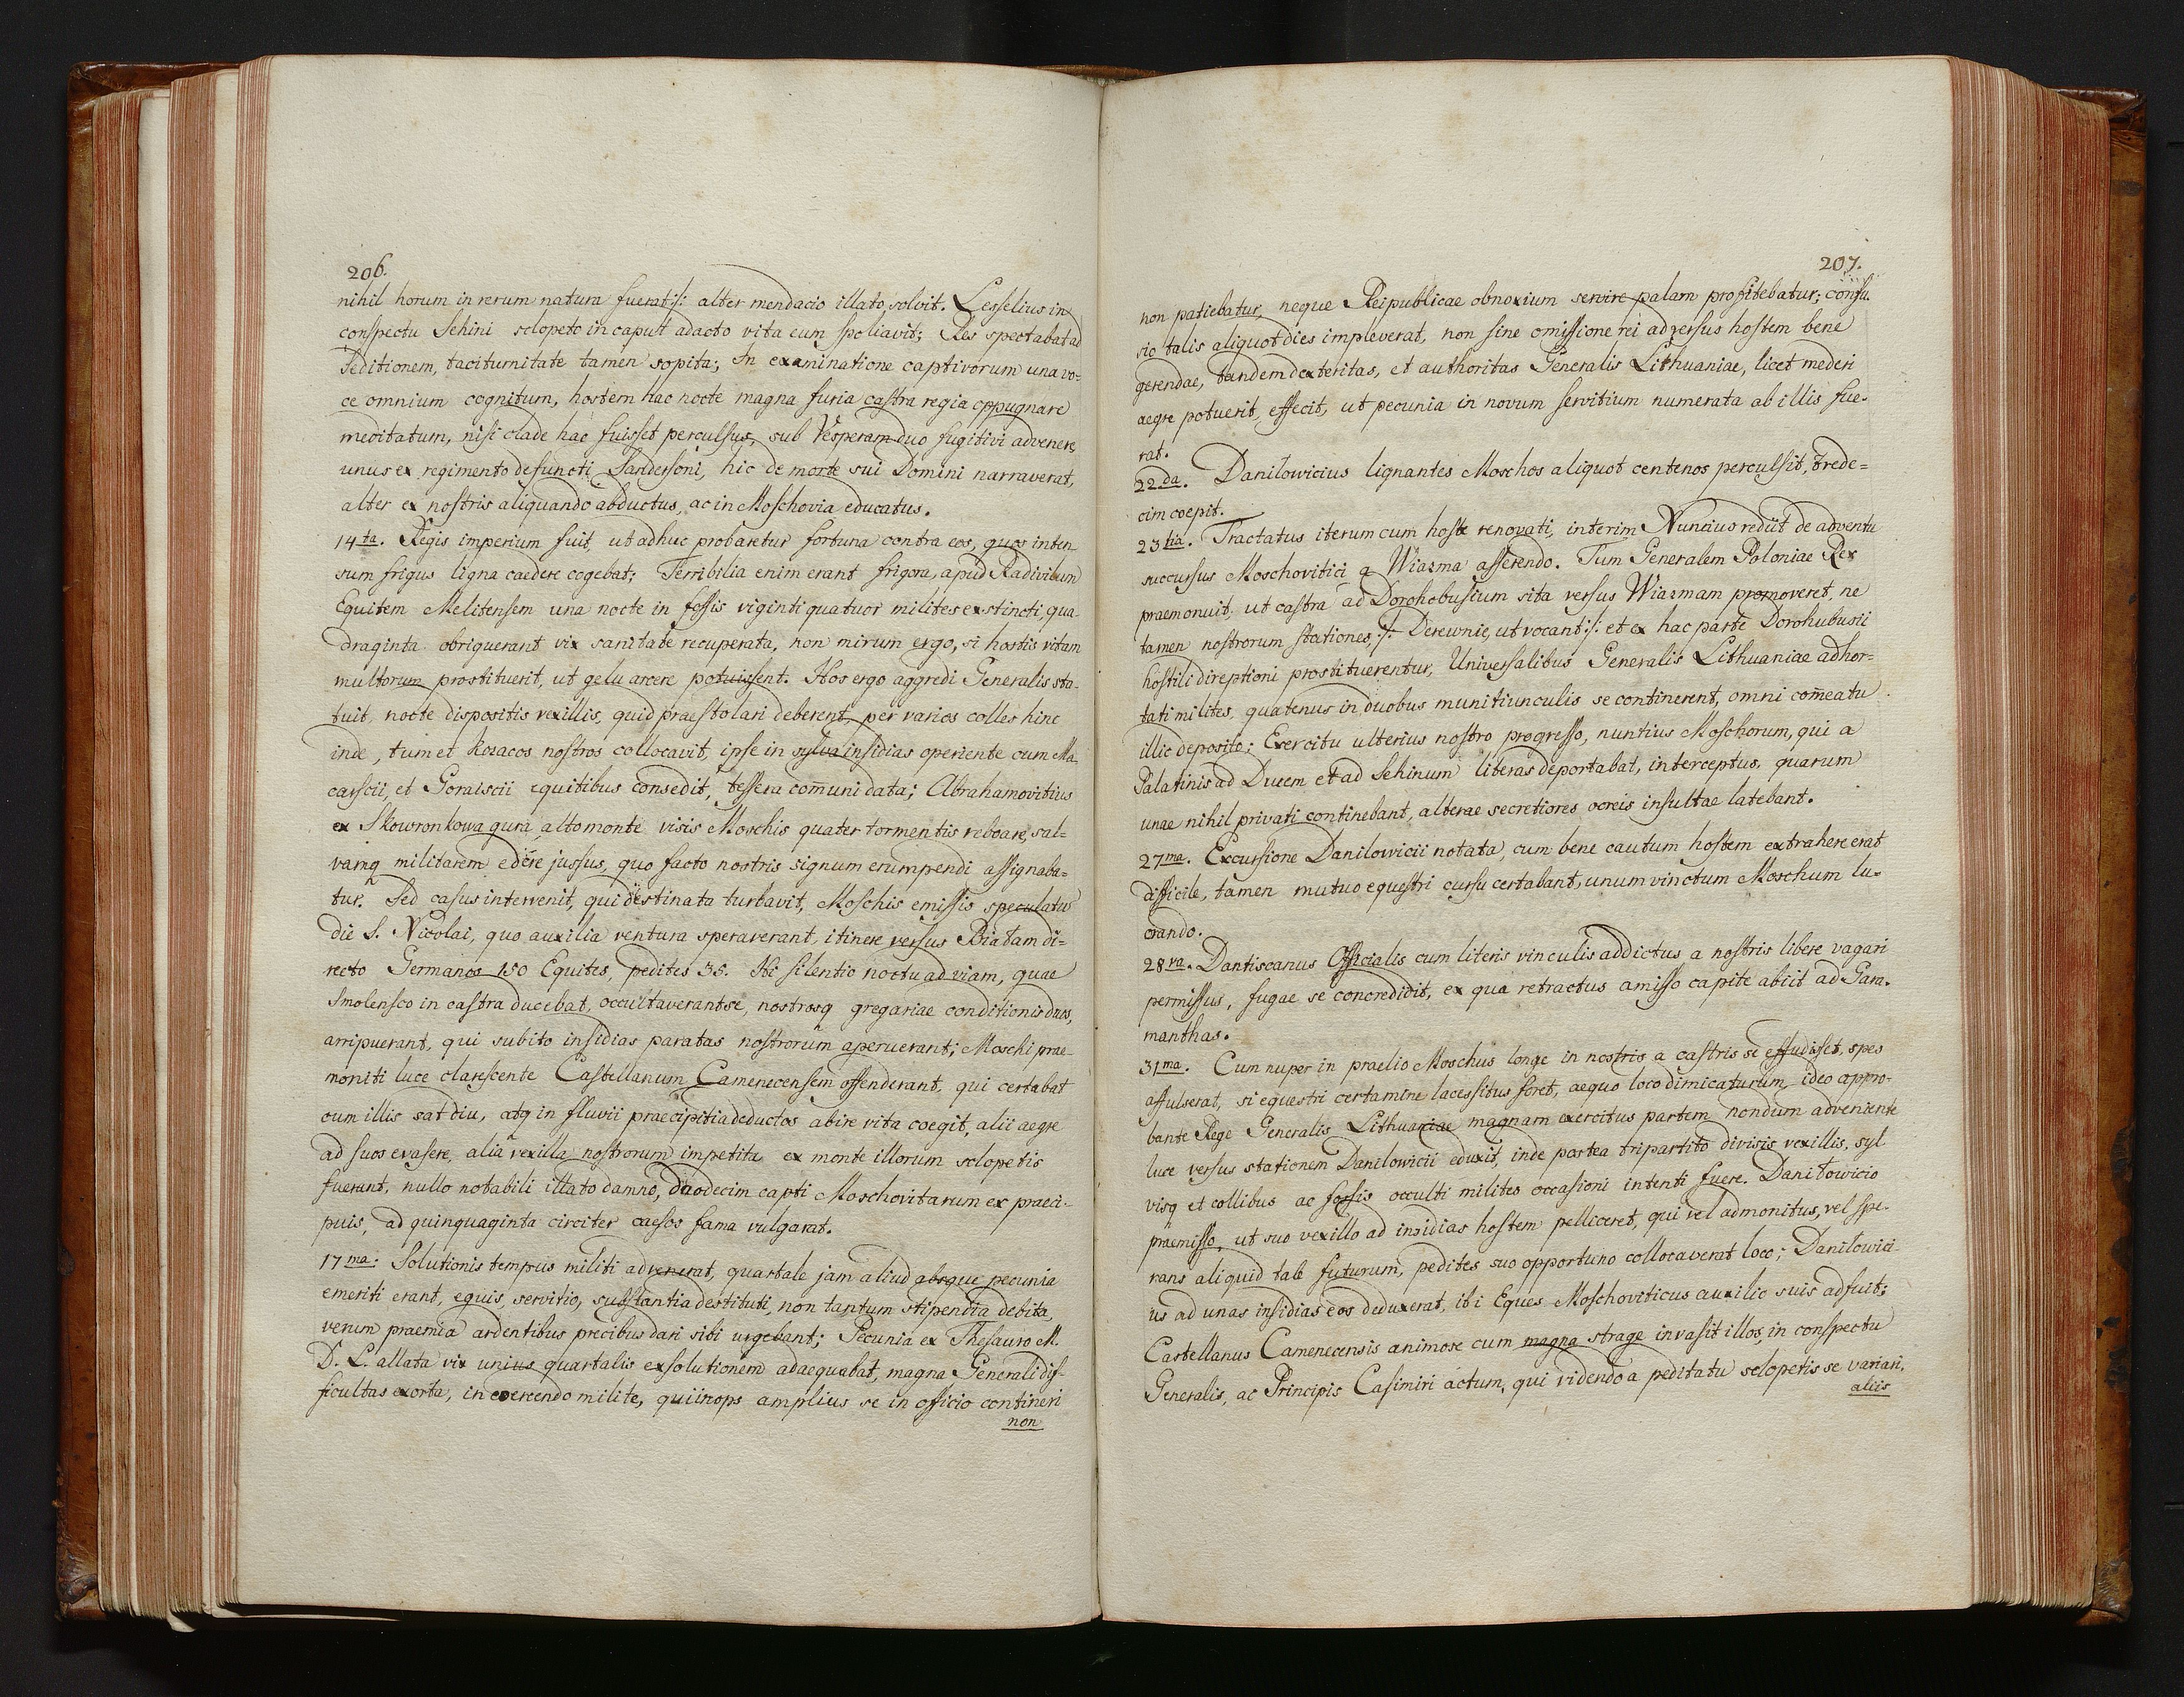 206.
nihil horum in rerum natura fuerat:/: alter mendacio illato, solvit. Lesselius in
conspectu Sehini sclopeto in caput adacto vita eum spoliavit; Res spectabat ad
Seditionem, taciturnitate tamen sopita; In examinatione captivorum una vo=
ce omnium cognitum, hostem hac nocte magna furia castra regia oppugnare
meditatum, nisi clade hac fuisset perculsus, sub Vesperam duo fugitivi advenere,
unus ex regimento defuncti Sandersoni, hic de morte sui Domini narraverat,
alter ex nostris aliquando abductus, ac in Moschovia educatus.
14ta. Regis imperium fuit, ut adhuc probaretur fortuna contra eos, quos inten
sum frigus ligna caedere cogebat; Terribilia enim erant frigora, apud Radivilium
Equitem Melitensem una nocte in fossis viginti quatuor milites exstincti, qua
draginta obriguerant vix sanitate recuperata, non mirum ergo, si hostis vitam
multorum prostituerit, ut gelu arcere potuissent. Hos ergo aggredi Generalis sta-
tuit, nocte dispositis vexillis, quid praestolari deberent, per varios colles hinc
inde, tum et kozacos nostros collocavit, ipse in sylva insidias operiente cum Ma
carscii, et Goraiscii equitibus consedit, tessera com̄uni data; Abrahamovitius
ex Skowronkowa gura alto monte visis Moschis quater tormentis reboare, sal=
vamq militarem edere jussus, quo facto nostris signum erumpendi assignaba=
tur. Sed casus intervenit, qui destinata turbavit, Moschis emissis speculatu
die S. Nicolai, quo auxilia ventura speraverant, itinere versus Białam di=
recto Germanos 150 Equites, pedites 35. Hi silentio noctu ad viam, quae
Smolensco in castra ducebat, occultaverant se, nostrosq gregariae conditionis duos,
arripuerant, qui subito insidias paratas nostrorum aperuerant; Moschi prae-
moniti luce clarescente Castellanum Camenecensem offenderant, qui certabat
cum illis sat diu, atq in fluvii praecipitia deductos abire vita coegit, alii aegre
ad suos evasere, alia vexilla nostrorum impetita ex monte illorum sclopetis
fuerunt, nullo notabili illato damno, duodecim capti Moschovitarum ex praeci-
puis, ad quinquaginta circiter caesos fama vulgarat.
17ma: Solutionis tempus militi advenerat, quartale jam aliud absque pecunia
emeriti erant, equis, servitio, substantia destituti, non tantum stipendia debita,
verum praemia ardentibus precibus dari sibi urgebant; Pecunia ex Thesauro M.
D. L. allata vix unius quartalis exsolutionem adaequabat, magna Generali dif-
ficultas exorta, in coercendo milite, qui inops amplius se in officio contineri
non
207.
non patiebatur, neque Reipublicae obnoxium servire palam profitebatur; confu.
sio talis aliquot dies impleverat, non sine omissione rei adversus hostem bene
gerendae, tandem dexteritas, et authoritas Generalis Lithuaniae, licet mederi
aegre potuerit, effecit, ut pecunia in novum servitium numerata ab illis fue-
rat.
22da. Daniłowicius lignantes Moschos aliquot centenos perculsit, trede=
cim coepit.
23tia. Tractatus iterum cum hoste renovati, interim Nuncius rediit de adventu
succursus Moschovitici a Wiazma asserendo. Tum Generalem Poloniae Rex
praemonuit, ut castra ad Dorohobusium sita versus Wiazmam promoveret, ne
tamen nostrorum stationes, :/: Derewnie, ut vocant:/: et ex hac parte Dorohubusii
hostili direptioni prostituerentur, Universalibus Generalis Lithuaniae adhor=
tati milites, quatenus in duobus munitiunculis se continerent, omni com̄eatu
illic deposito; Exercitu ulterius nostro progresso, nuntius Moschorum, qui a
Palatinis ad Ducem et ad Sehinum literas deportabat, interceptus, quarum
unae nihil privati continebant, alterae secretiores ocreis insultae latebant.
27ma. Excursione Danilowicii notata, cum bene cautum hostem extrahere erat
difficile, tamen mutuo equestri cursu certabant, unum vinctum Moschum lu=
crando.
28va. Dantiscanus Officialis cum literis vinculis addictus a nostris libere vagari
permissus, fugae se concredidit, ex qua retractus amisso capite abiit ad Gara-
manthas.
31ma. Cum nuper in praelio Moschus longe in nostris a castris se effudisset, spes
affulserat, si equestri certamine lacessitus foret, aequo loco dimicaturum, ideo appro-
bante Rege Generalis Lithuaniae magnam exercitus partem nondum adveniente
luce versus stationem Danilowicii eduxit, inde postea tripartito divisis vexillis, syl
visq et collibus ac fossis occulti milites occasioni intenti fuere. Daniłowicio
praemisso, ut suo vexillo ad insidias hostem pelliceret, qui vel admonitus, vel spe-
rans aliquid tale futurum, pedites suo opportuno collocaverat loco; Daniłowici-
us ad unas insidias eos deduxerat, ibi Eques Moschoviticus auxilio suis adfuit;
Castellanus Camenecensis animose cum magna strage invasit illos, in conspectu
Generalis, ac Principis Casimiri actum, qui videndo a peditatu sclopetis se variari,
aliis